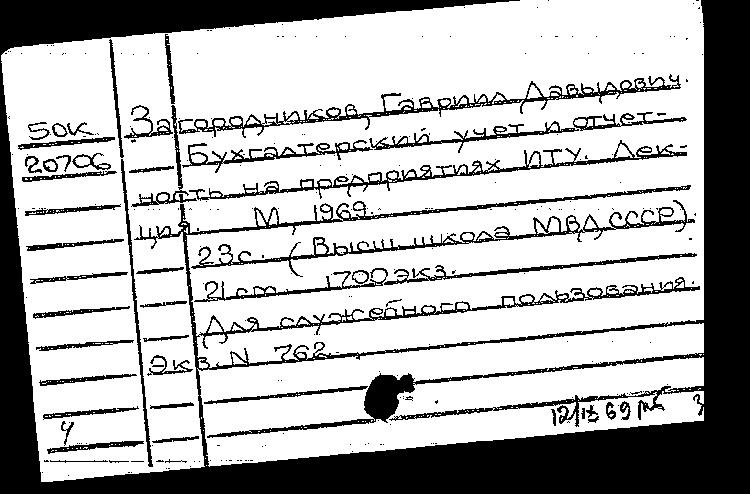 50К Загородников, Гавриил Давыдович.
20706 Бухгалтерский учет и отчет-
ность на предприятиях ИТУ. Лек-
ция. М, 1969.
23с. (Высш. школа МВД СССР).
21 cm. 1700 экз.
Для служебного пользования.
Экз. N 762
12/IX 69
3
4